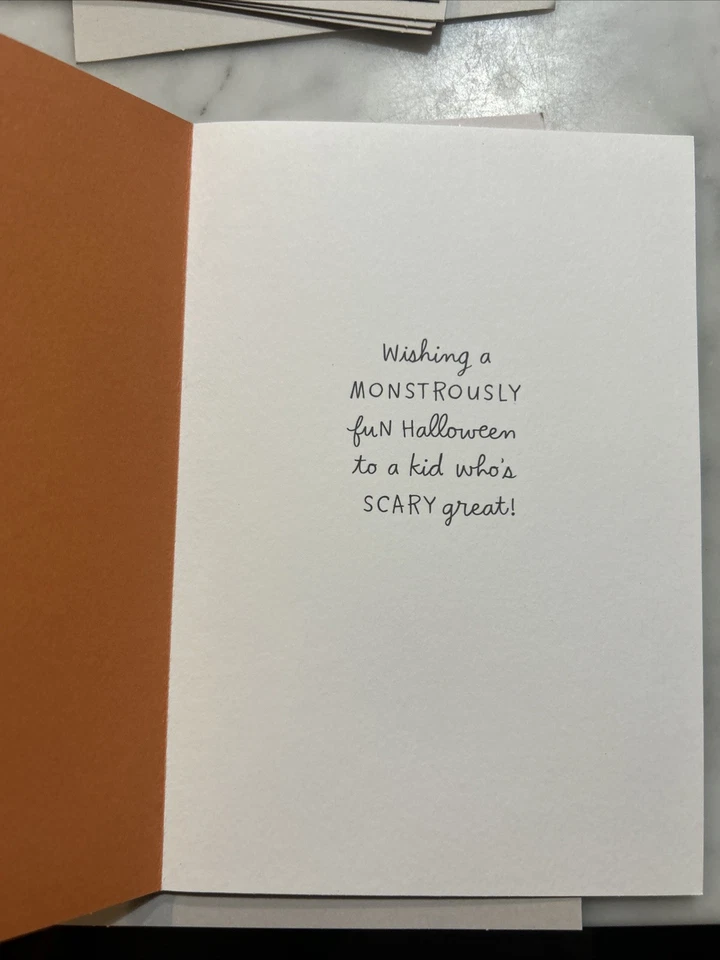 Wishing a
MONSTROUSLY
fuN Halloween
to a kid who's
SCARY great!